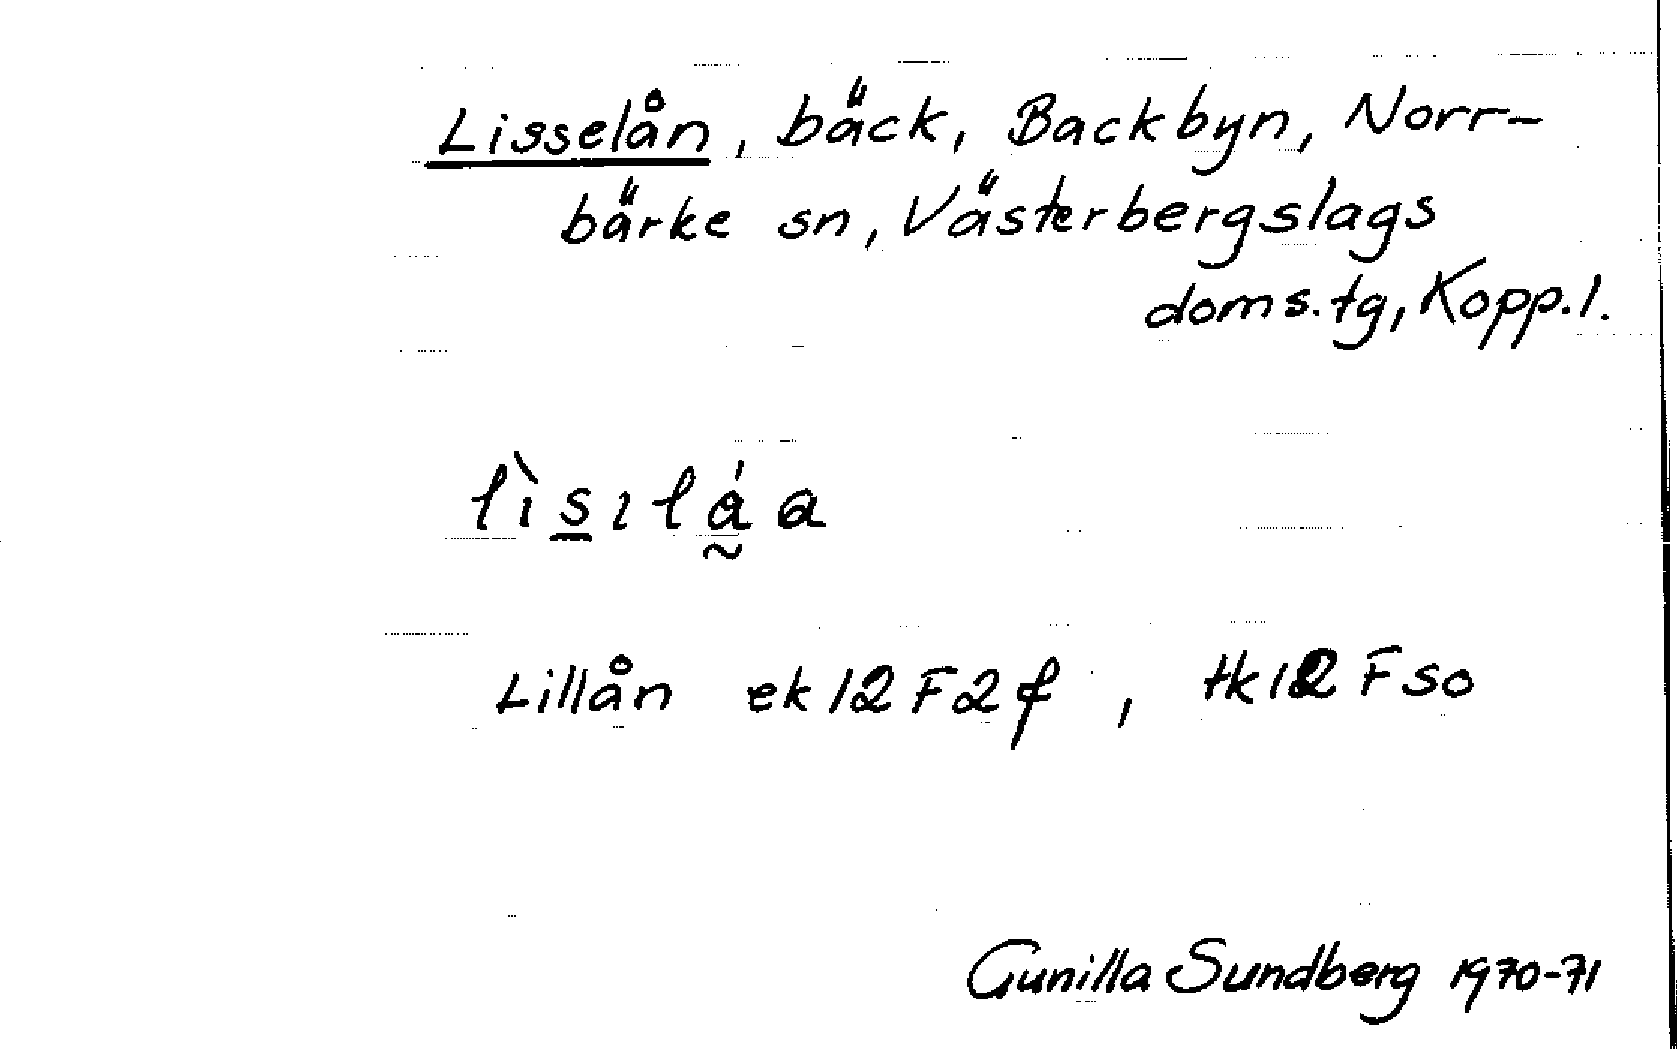 Lisselån, bäck, Backbyn, Norr-
bärke sn, Västerbergslags
doms.tg, Kopp.l.
lìsɩlá̰a
Lillån ek12F2f, tk12Fso
Gunilla Sundberg 1970-71